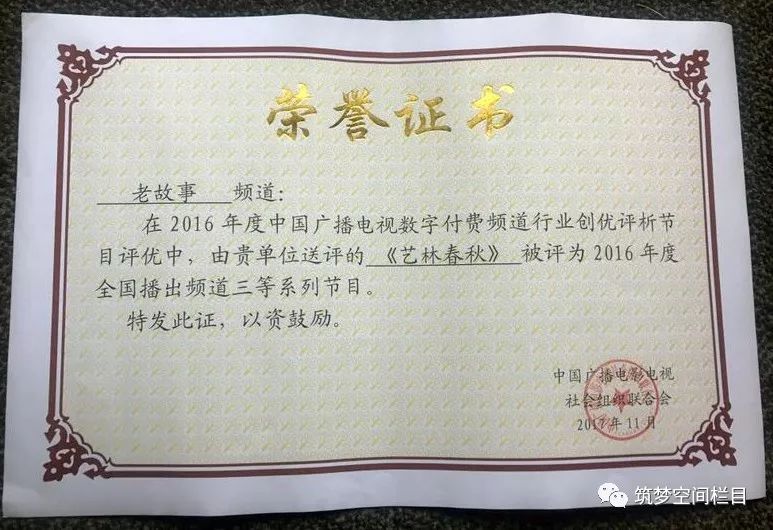 荣誉证书
老故事 频道：
在2016年度中国广播电视数字付费频道行业创优评析节
目评优中，由贵单位送评的《艺林春秋》被评为2016年度
全国播出频道三等系列节目。
特发此证，以资鼓励。
中国广播电影电视
社会组织联合会
2017年11月
筑梦空间栏目